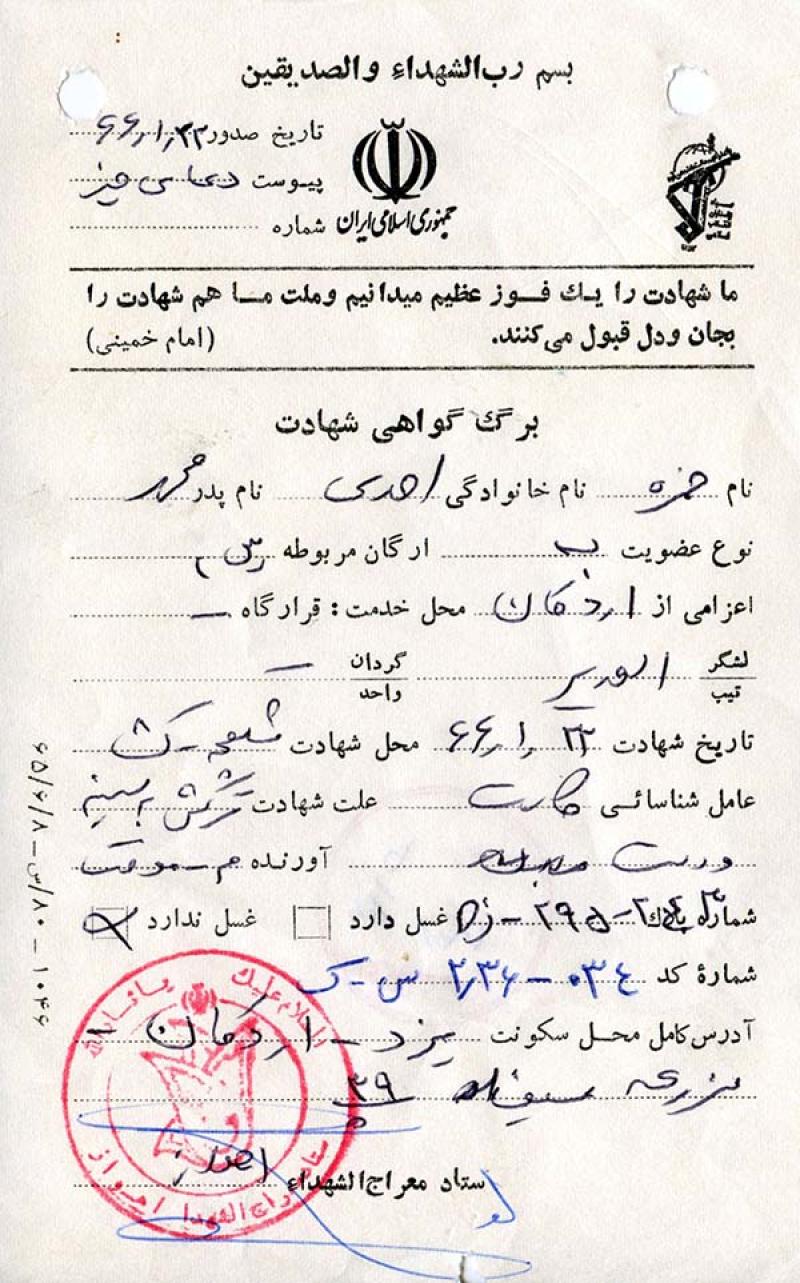 بسم رب الشهداء والصدیقین
تاریخ صدور ۶۶٫۱٫۲۳
پیوست
شماره
جمهوری اسلامی ایران
ما شهادت را یک فوز عظیم میدانیم وملت ما هم شهادت را
بجان ودل قبول می‌کنند. (امام خمینی)
برگ گواهی شهادت
نام حمزه نام خانوادگی احمدی نام پدر محمد
نوع عضویت ب ارگان مربوطه
اعزامی از اردکان محل خدمت: قرارگاه ـ
لشگر
تیپ الغدیر گردان
واحد ـ
تاریخ شهادت ۶۶٫۱٫۲۳ محل شهادت
عامل شناسائی کارت علت شهادت ترکش به سینه
آورنده
شماره پلاک غسل دارد غسل ندارد
شمارهٔ کد ۰۳۴-۲٫۳۶ س-ک
آدرس کامل محل سکونت یزد - اردکان -
مزرعه سیف
۲۹
ستاد معراج الشهداء
السلام علیک
ستاد معراج الشهدا اهواز
۱۰۴۶ – ۸۰/س – ۶۵/۶/۸